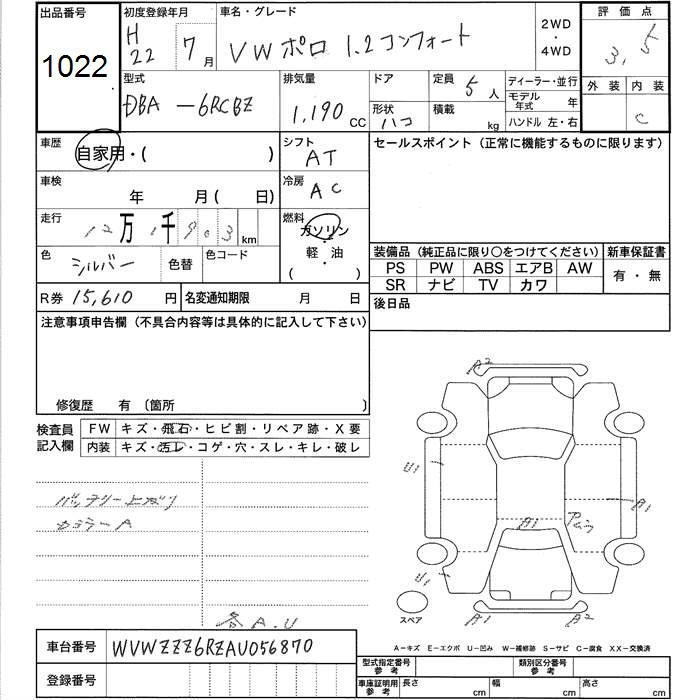 出品番号 初度登録年月 車名・グレード 2WD・4WD 評価点
1022 H22 7月 VWポロ 1.2コンフォート 3.5
型式 排気量 ドア 定員 5人 ディーラー・並行 外装 内装
DBA-6RCBZ 1,190 CC 形状 ハコ 積載 kg モデル年式 年 C
ハンドル 左・右
車歴 自家用・( ) シフト AT セールスポイント (正常に機能するものに限ります)
車検 年 月( 日) 冷房 AC
走行 12万1千903km 燃料 ガソリン・軽・油 ( )
色 シルバー 色替 色コード 装備品 (純正品に限り○をつけてください) 新車保証書
PS PW ABS エアB AW 有・無
SR ナビ TV カワ
R券 15,610円 名変通知期限 月 日 後日品
注意事項申告欄 (不具合内容等は具体的に記入して下さい)
修復歴 有 〔箇所 〕
検査員記入欄 FW キズ・飛石・ヒビ割・リペア跡・X要
内装 キズ・汚レ・コゲ・穴・スレ・キレ・破レ
バッテリー上ガリ
カラーA
各A.U
A2
U1
A1
A1
U1
A1
A2
スペア
A-キズ E-エクボ U-凹み W-補修跡 S-サビ C-腐食 XX-交換済
車台番号 WVWZZZ6RZAU056870
登録番号
型式指定番号 参考 類別区分番号 参考
車庫証明用 参考 長さ cm 幅 cm 高さ cm